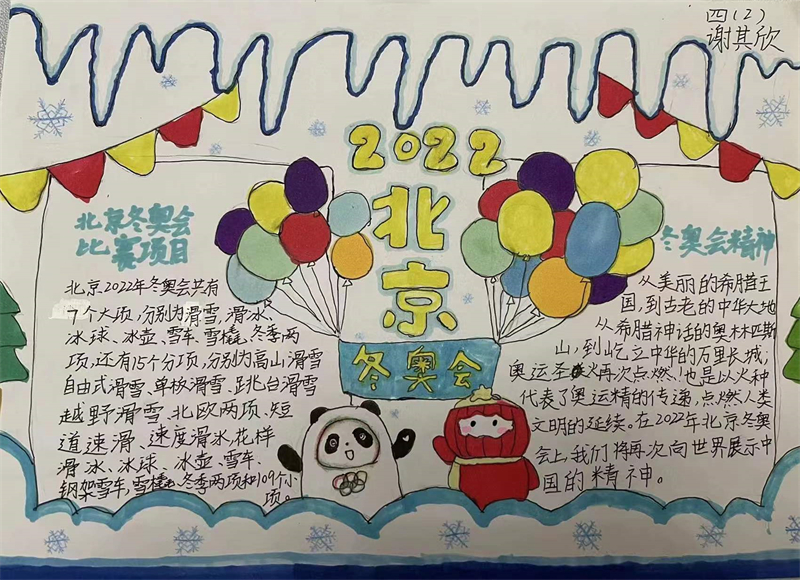 四(2)
谢其欣
2022
北
京
冬奥会
北京冬奥会
比赛项目
北京2022年冬奥会共有
7个大项,分别为滑雪、滑冰、
冰球、冰壶、雪车、雪橇、冬季两
项,还有15个分项,分别为高山滑雪
自由式滑雪、单板滑雪、跳台滑雪
越野滑雪、北欧两项、短
道速滑、速度滑冰、花样
滑冰、冰球、冰壶、雪车、
钢架雪车,雪橇、冬季两项和109个小
项。
冬奥会精神
从美丽的希腊王
国,到古老的中华大地
从希腊神话的奥林匹斯
山,到屹立中华的万里长城;
奥运圣火再次点燃!也是以火种
代表了奥运精的传递,点燃人类
文明的延续。在2022年北京冬奥
会上,我们将再次向世界展示中
国的精神。